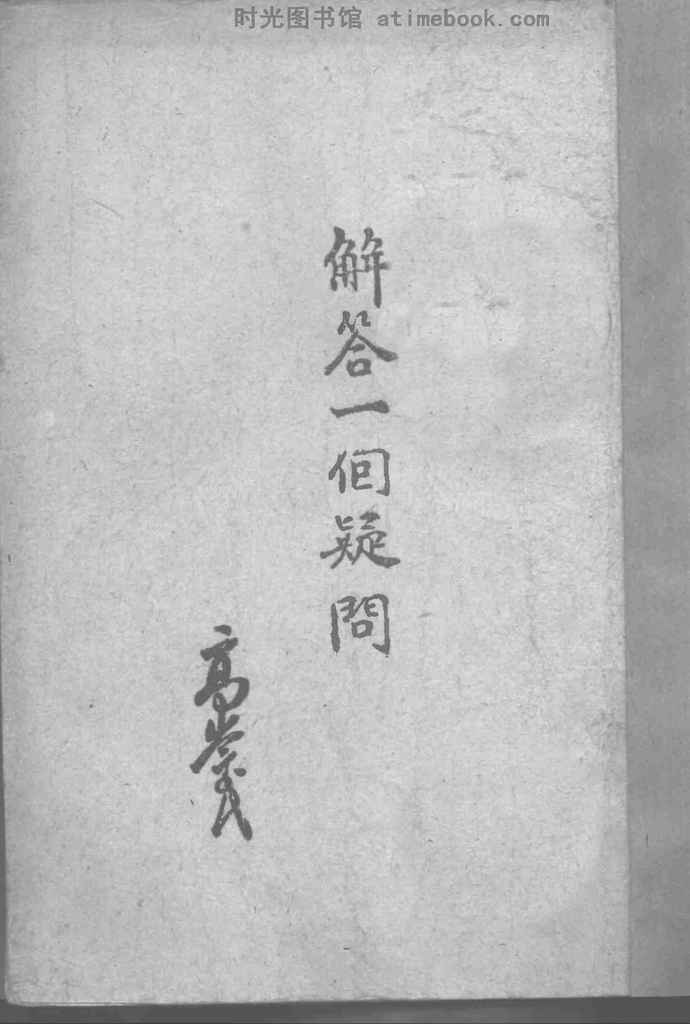 时光图书馆 atimebook.com
解答一個疑問
高崇民